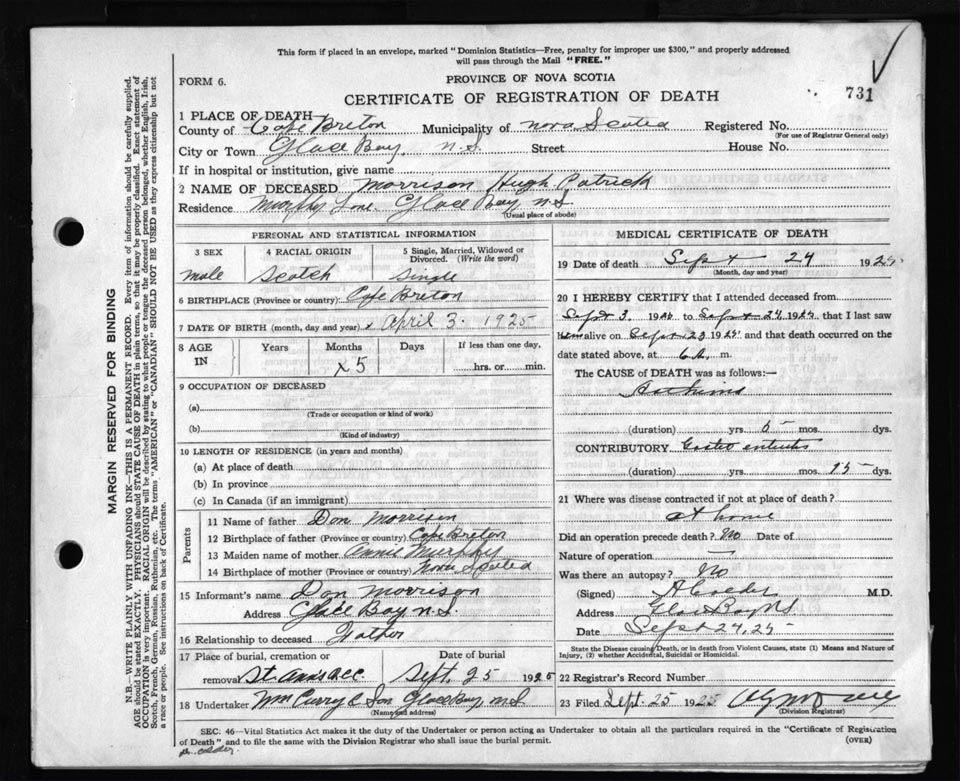 This form if placed in an envelope, marked "Dominion Statistics—Free, penalty for improper use $300," and properly addressed
will pass through the Mail "FREE."
FORM 6.
PROVINCE OF NOVA SCOTIA
731
CERTIFICATE OF REGISTRATION OF DEATH
1 PLACE OF DEATH
County of Cape Breton Municipality of Nova Scotia Registered No.
(For use of Registrar General only)
City or Town Glace Bay N.S. Street House No.
If in hospital or institution, give name
2 NAME OF DECEASED Morrison Hugh Patrick
Residence Murphy Lane. Glace Bay N.S.
(Usual place of abode)
PERSONAL AND STATISTICAL INFORMATION
3 SEX 4 RACIAL ORIGIN 5 Single, Married, Widowed or
Divorced. (Write the word)
male Scotch Single
6 BIRTHPLACE (Province or country) Cape Breton
7 DATE OF BIRTH (month, day and year) x April 3. 1925
8 AGE IN Years Months Days If less than one day,
x 5 hrs. or min.
9 OCCUPATION OF DECEASED
(a)
(Trade or occupation or kind of work)
(b)
(Kind of industry)
10 LENGTH OF RESIDENCE (in years and months)
(a) At place of death
(b) In province
(c) In Canada (if an immigrant)
Parents
11 Name of father Don Morrison
12 Birthplace of father (Province or country) Cape Breton
13 Maiden name of mother Annie Murphy
14 Birthplace of mother (Province or country) Nova Scotia
15 Informant's name Don Morrison
Address Glace Bay N.S.
16 Relationship to deceased Father
17 Place of burial, cremation or Date of burial
removal St. Anns Sept. 25 1925
18 Undertaker Wm Curry & Son Glace Bay N.S.
(Name and address)
MEDICAL CERTIFICATE OF DEATH
19 Date of death Sept 24 1925
(Month, day and year)
20 I HEREBY CERTIFY that I attended deceased from
Sept 3. 192 to Sept 24 1925, that I last saw
alive on Sept 23 1925 and that death occurred on the
date stated above, at 6 m.
The CAUSE of DEATH was as follows:—
(duration) yrs. mos. dys.
CONTRIBUTORY Gastro enteritis
(duration) yrs. mos. 15 dys.
21 Where was disease contracted if not at place of death?
at home
Did an operation precede death? No Date of
Nature of operation —
Was there an autopsy? No
(Signed) M.D.
Address Glace Bay NS
Date Sept 24, 25
State the Disease causing Death, or in death from Violent Causes, state (1) Means and Nature of
Injury, (2) whether Accidental, Suicidal or Homicidal.
22 Registrar's Record Number
23 Filed Sept. 25 1925
(Division Registrar)
SEC. 46—Vital Statistics Act makes it the duty of the Undertaker or person acting as Undertaker to obtain all the particulars required in the "Certificate of Registration
of Death" and to file the same with the Division Registrar who shall issue the burial permit.
(OVER)
Dr. Calder
MARGIN RESERVED FOR BINDING
N.B.—WRITE PLAINLY WITH UNFADING INK—THIS IS A PERMANENT RECORD. Every item of information should be carefully supplied.
AGE should be stated EXACTLY. PHYSICIANS should STATE CAUSE OF DEATH in plain terms, so that it may be properly classified. Exact statement of
OCCUPATION is very important. RACIAL ORIGIN will be described by stating to what people or tongue the deceased person belonged, whether English, Irish,
Scotch, French, German, Russian, Ruthenian, etc. The terms "AMERICAN" or "CANADIAN" SHOULD NOT BE USED as they express citizenship but not
a race or people. See instructions on back of Certificate.